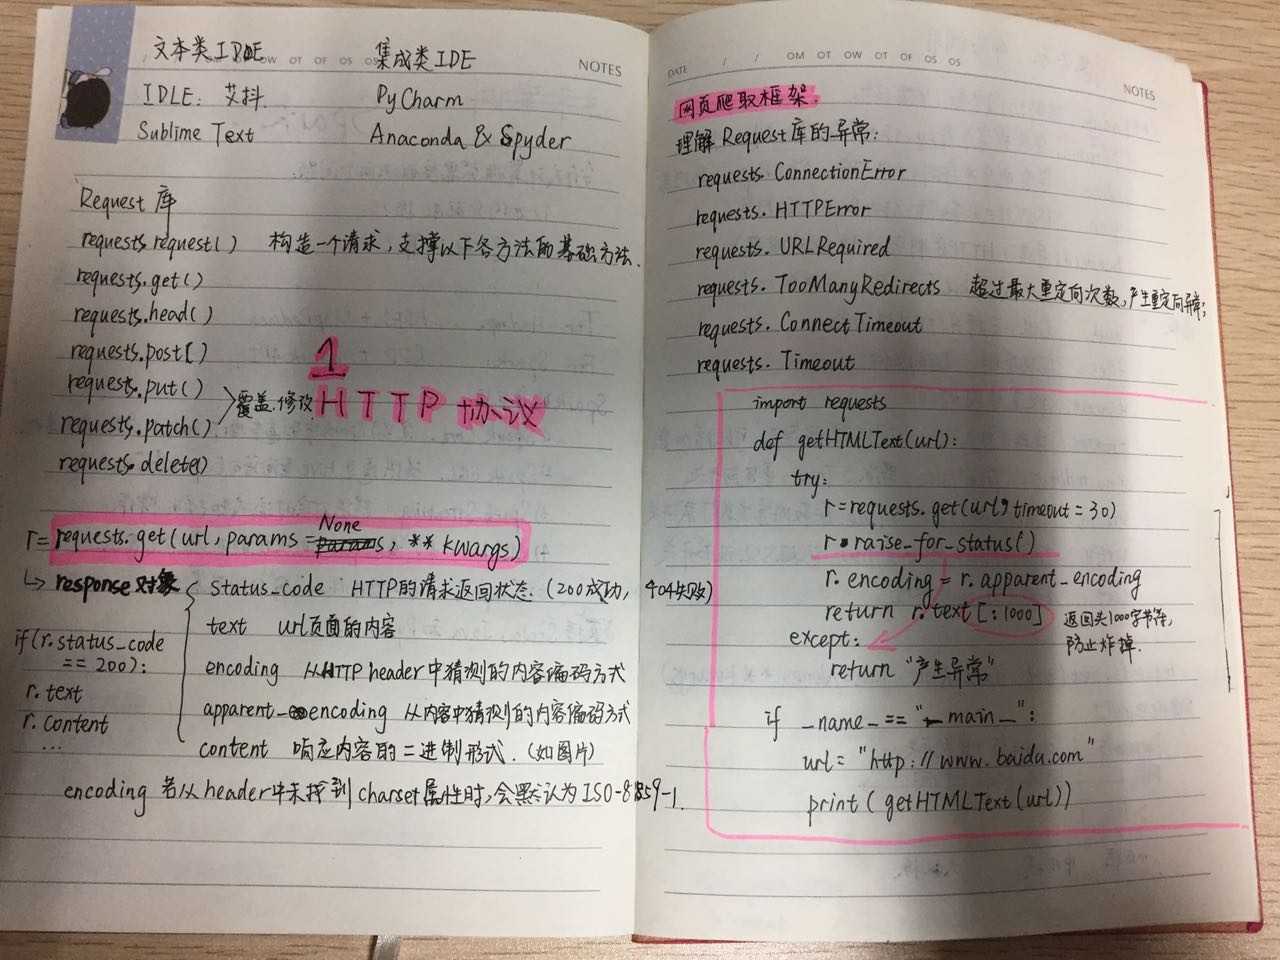 文本类IDE 集成类IDE
OW OT OF OS OS NOTES
IDLE: 艾抖. PyCharm
Sublime Text Anaconda & Spyder
Request 库
requests.request() 构造一个请求,支撑以下各方法的基础方法.
requests.get()
requests.head()
requests.post[)
requests.put()
覆盖.修改
requests.patch()
requests.delete()
1
HTTP 协议
None
r= requests.get(url, params = , ** kwargs)
↳ response对象
status_code HTTP的请求返回状态.(200成功, 404失败)
text url页面的内容
encoding 从HTTP header中猜测的内容编码方式
apparent_encoding 从内容中猜测的内容编码方式
content 响应内容的二进制形式.(如图片)
if(r.status_code
== 200):
r.text
r.content
...
encoding 若从header中未找到charset属性时,会默认为ISO-8859-1.
DATE / / OM OT OW OT OF OS OS NOTES
网页爬取框架.
理解Request库的异常:
requests. ConnectionError
requests. HTTPError
requests. URLRequired
requests. TooManyRedirects 超过最大重定向次数,产生重定向异常;
requests. ConnectTimeout
requests. Timeout
import requests
def getHTMLText(url):
try:
r=requests.get(url,timeout=30)
r.raise_for_status()
r.encoding = r.apparent_encoding
return r.text[:1000]
返回头1000字节等,
防止炸掉.
except:
return "产生异常"
if _name_=="_main_":
url="http://www.baidu.com"
print(getHTMLText(url))